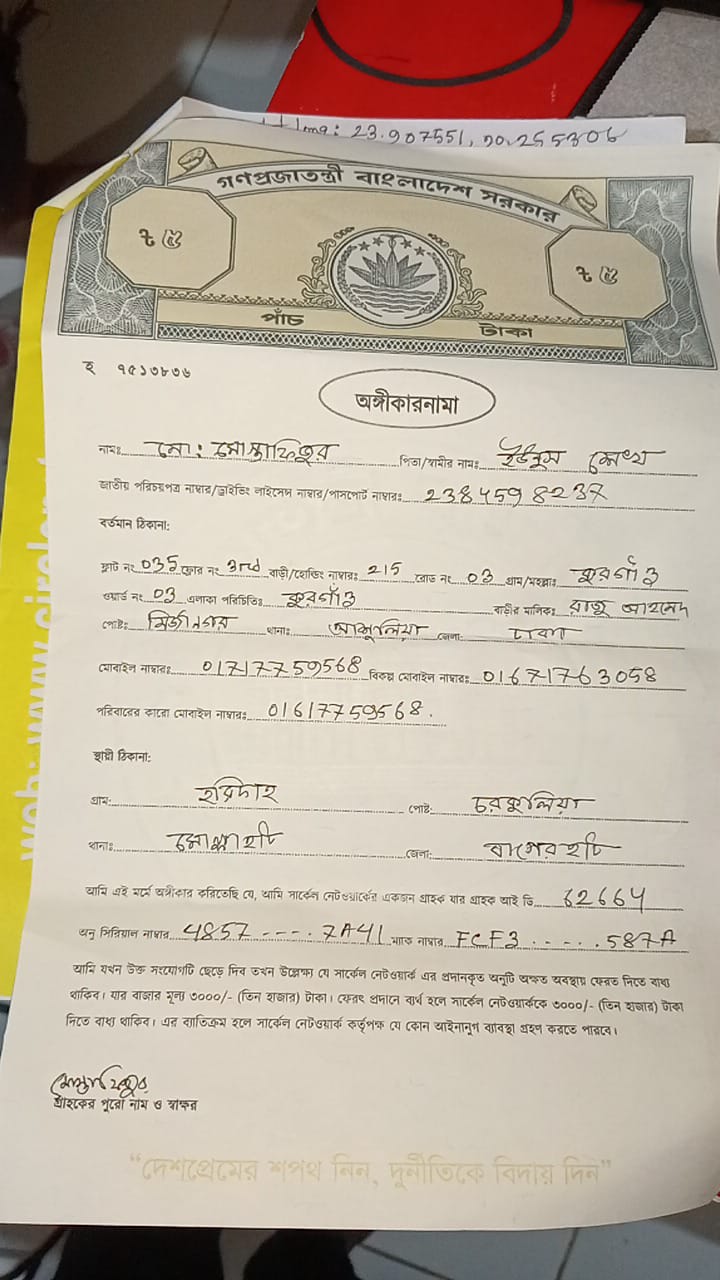 23.907551, 90.255306
গণপ্রজাতন্ত্রী বাংলাদেশ সরকার
৳ ৫ ৳ ৫
পাঁচ টাকা
ই ৭৫১৩৮৩৬
অঙ্গীকারনামা
নামঃ মো: মোস্তাফিজুর পিতা/স্বামীর নামঃ ইউনুস শেখ
জাতীয় পরিচয়পত্র নাম্বার/ড্রাইভিং লাইসেন্স নাম্বার/পাসপোর্ট নাম্বারঃ 2384598237
বর্তমান ঠিকানা:
ফ্লাট নং 035 ফ্লোর নং 3rd বাড়ী/হোল্ডিং নাম্বারঃ 215 রোড নং 03 গ্রাম/মহল্লাঃ কুরগাঁও
ওয়ার্ড নং 03 এলাকা পরিচিতিঃ কুরগাঁও বাড়ীর মালিকঃ রাজু আহমেদ
পোষ্টঃ মির্জানগর থানাঃ আশুলিয়া জেলা: ঢাকা
মোবাইল নাম্বারঃ 01717759568 বিকল্প মোবাইল নাম্বারঃ 01671763058
পরিবারের কারো মোবাইল নাম্বারঃ 01617759568.
স্থায়ী ঠিকানা:
গ্রাম: হদ্রিদাহ পোষ্ট: চরকুলিয়া
থানাঃ মোল্লাহাট জেলা: বাগেরহাট
আমি এই মর্মে অঙ্গীকার করিতেছি যে, আমি সার্কেল নেটওয়ার্কের একজন গ্রাহক যার গ্রাহক আই ডি 62664
অনু সিরিয়াল নাম্বার 4857----.7A41 ম্যাক নাম্বার FCF3......587A
আমি যখন উক্ত সংযোগটি ছেড়ে দিব তখন উল্লেক্ষ্য যে সার্কেল নেটওয়ার্ক এর প্রদানকৃত অনুটি অক্ষত অবস্থায় ফেরত দিতে বাধ্য
থাকিব। যার বাজার মূল্য ৩০০০/- (তিন হাজার) টাকা। ফেরৎ প্রদানে ব্যর্থ হলে সার্কেল নেটওয়ার্ককে ৩০০০/- (তিন হাজার) টাকা
দিতে বাধ্য থাকিব। এর ব্যতিক্রম হলে সার্কেল নেটওয়ার্ক কর্তৃপক্ষ যে কোন আইনানুগ ব্যবস্থা গ্রহণ করতে পারবে।
মোস্তাফিজুর
গ্রাহকের পুরো নাম ও স্বাক্ষর
“দেশপ্রেমের শপথ নিন, দুর্নীতিকে বিদায় দিন”